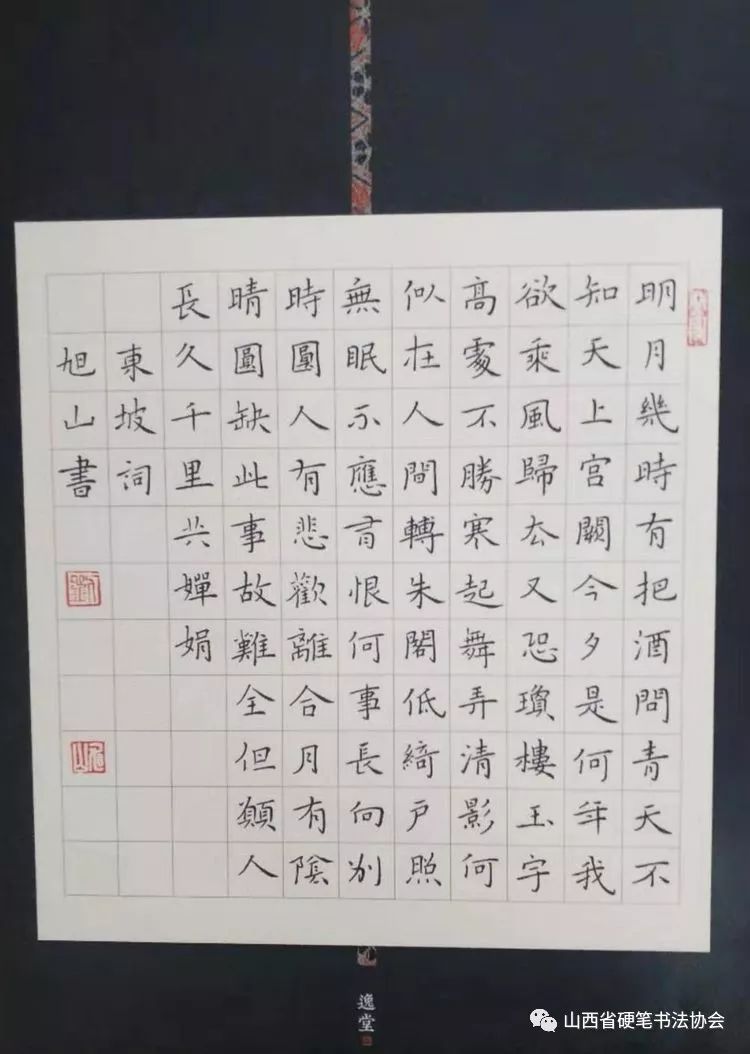 明月幾時有把酒問青天不
知天上宫闕今夕是何年我
欲乘風歸去又恐瓊樓玉宇
高處不勝寒起舞弄清影何
似在人間轉朱閣低綺户照
無眠不應有恨何事長向别
時圓人有悲歡離合月有陰
晴圓缺此事故難全但願人
長久千里共嬋娟
東坡詞
旭山書
逸堂
山西省硬笔书法协会